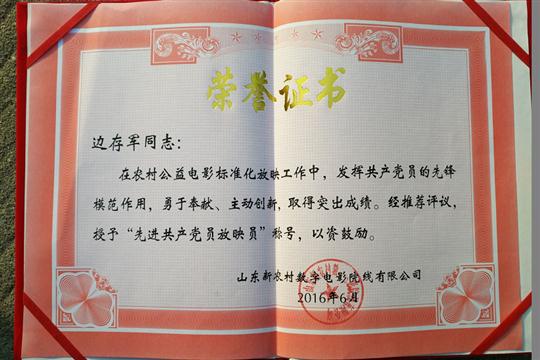 荣誉证书
边存军同志：
在农村公益电影标准化放映工作中，发挥共产党员的先锋
模范作用，勇于奉献、主动创新，取得突出成绩。经推荐评议，
授予“先进共产党员放映员”称号，以资鼓励。
山东新农村数字电影院线有限公司
2016年6月